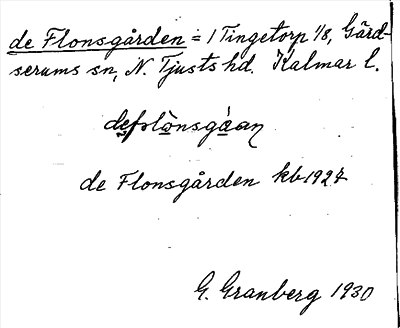 de Flonsgården = 1 Tingetorp 1/8, Gärd-
serums sn, N. Tjusts hd. Kalmar l.
de Flonsgården kb 1927
G. Granberg 1930